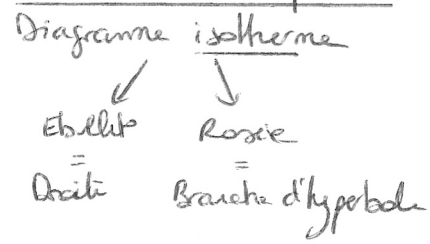 Diagramme isotherme
Ebullit° Rosée
= =
Droite Branche d'hyperbole